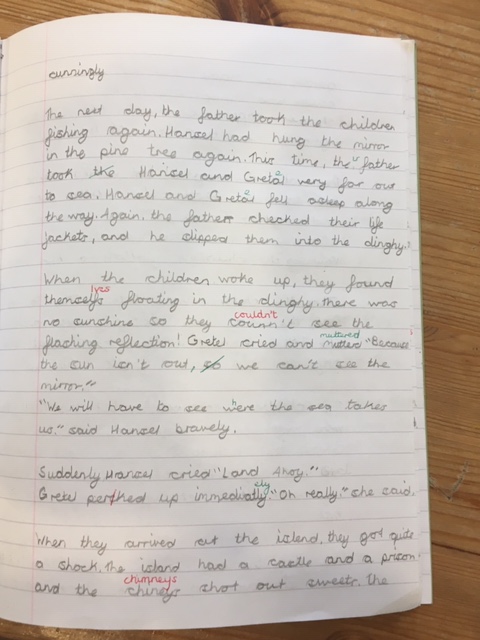 cunningly
The next day, the father took the children
fishing again. Hansel had hung the mirror
in the pine tree again. This time, the father
took the Hansel and Gretal very far out
to sea. Hansel and Gretal fell asleep along
the way. Again, the father checked their life
jackets, and he slipped them into the dinghy.
When the children woke up, they found
lves
themselfs floating in the dinghy. There was
couldn't
no sunshine so they counn't see the
muttured
flashing reflection! Gretel cried and mutterd "Because
the sun isn't out, so we can't see the
mirror."
"We will have to see where the sea takes
us." said Hansel bravely.
Suddenly Hansel cried "Land Ahoy."
ely
Gretel perked up immediatly. "Oh really." she said.
When they arrived at the island, they got quite
a shock. The island had a castle and a prison
chimneys
and the chineys shot out sweets. The